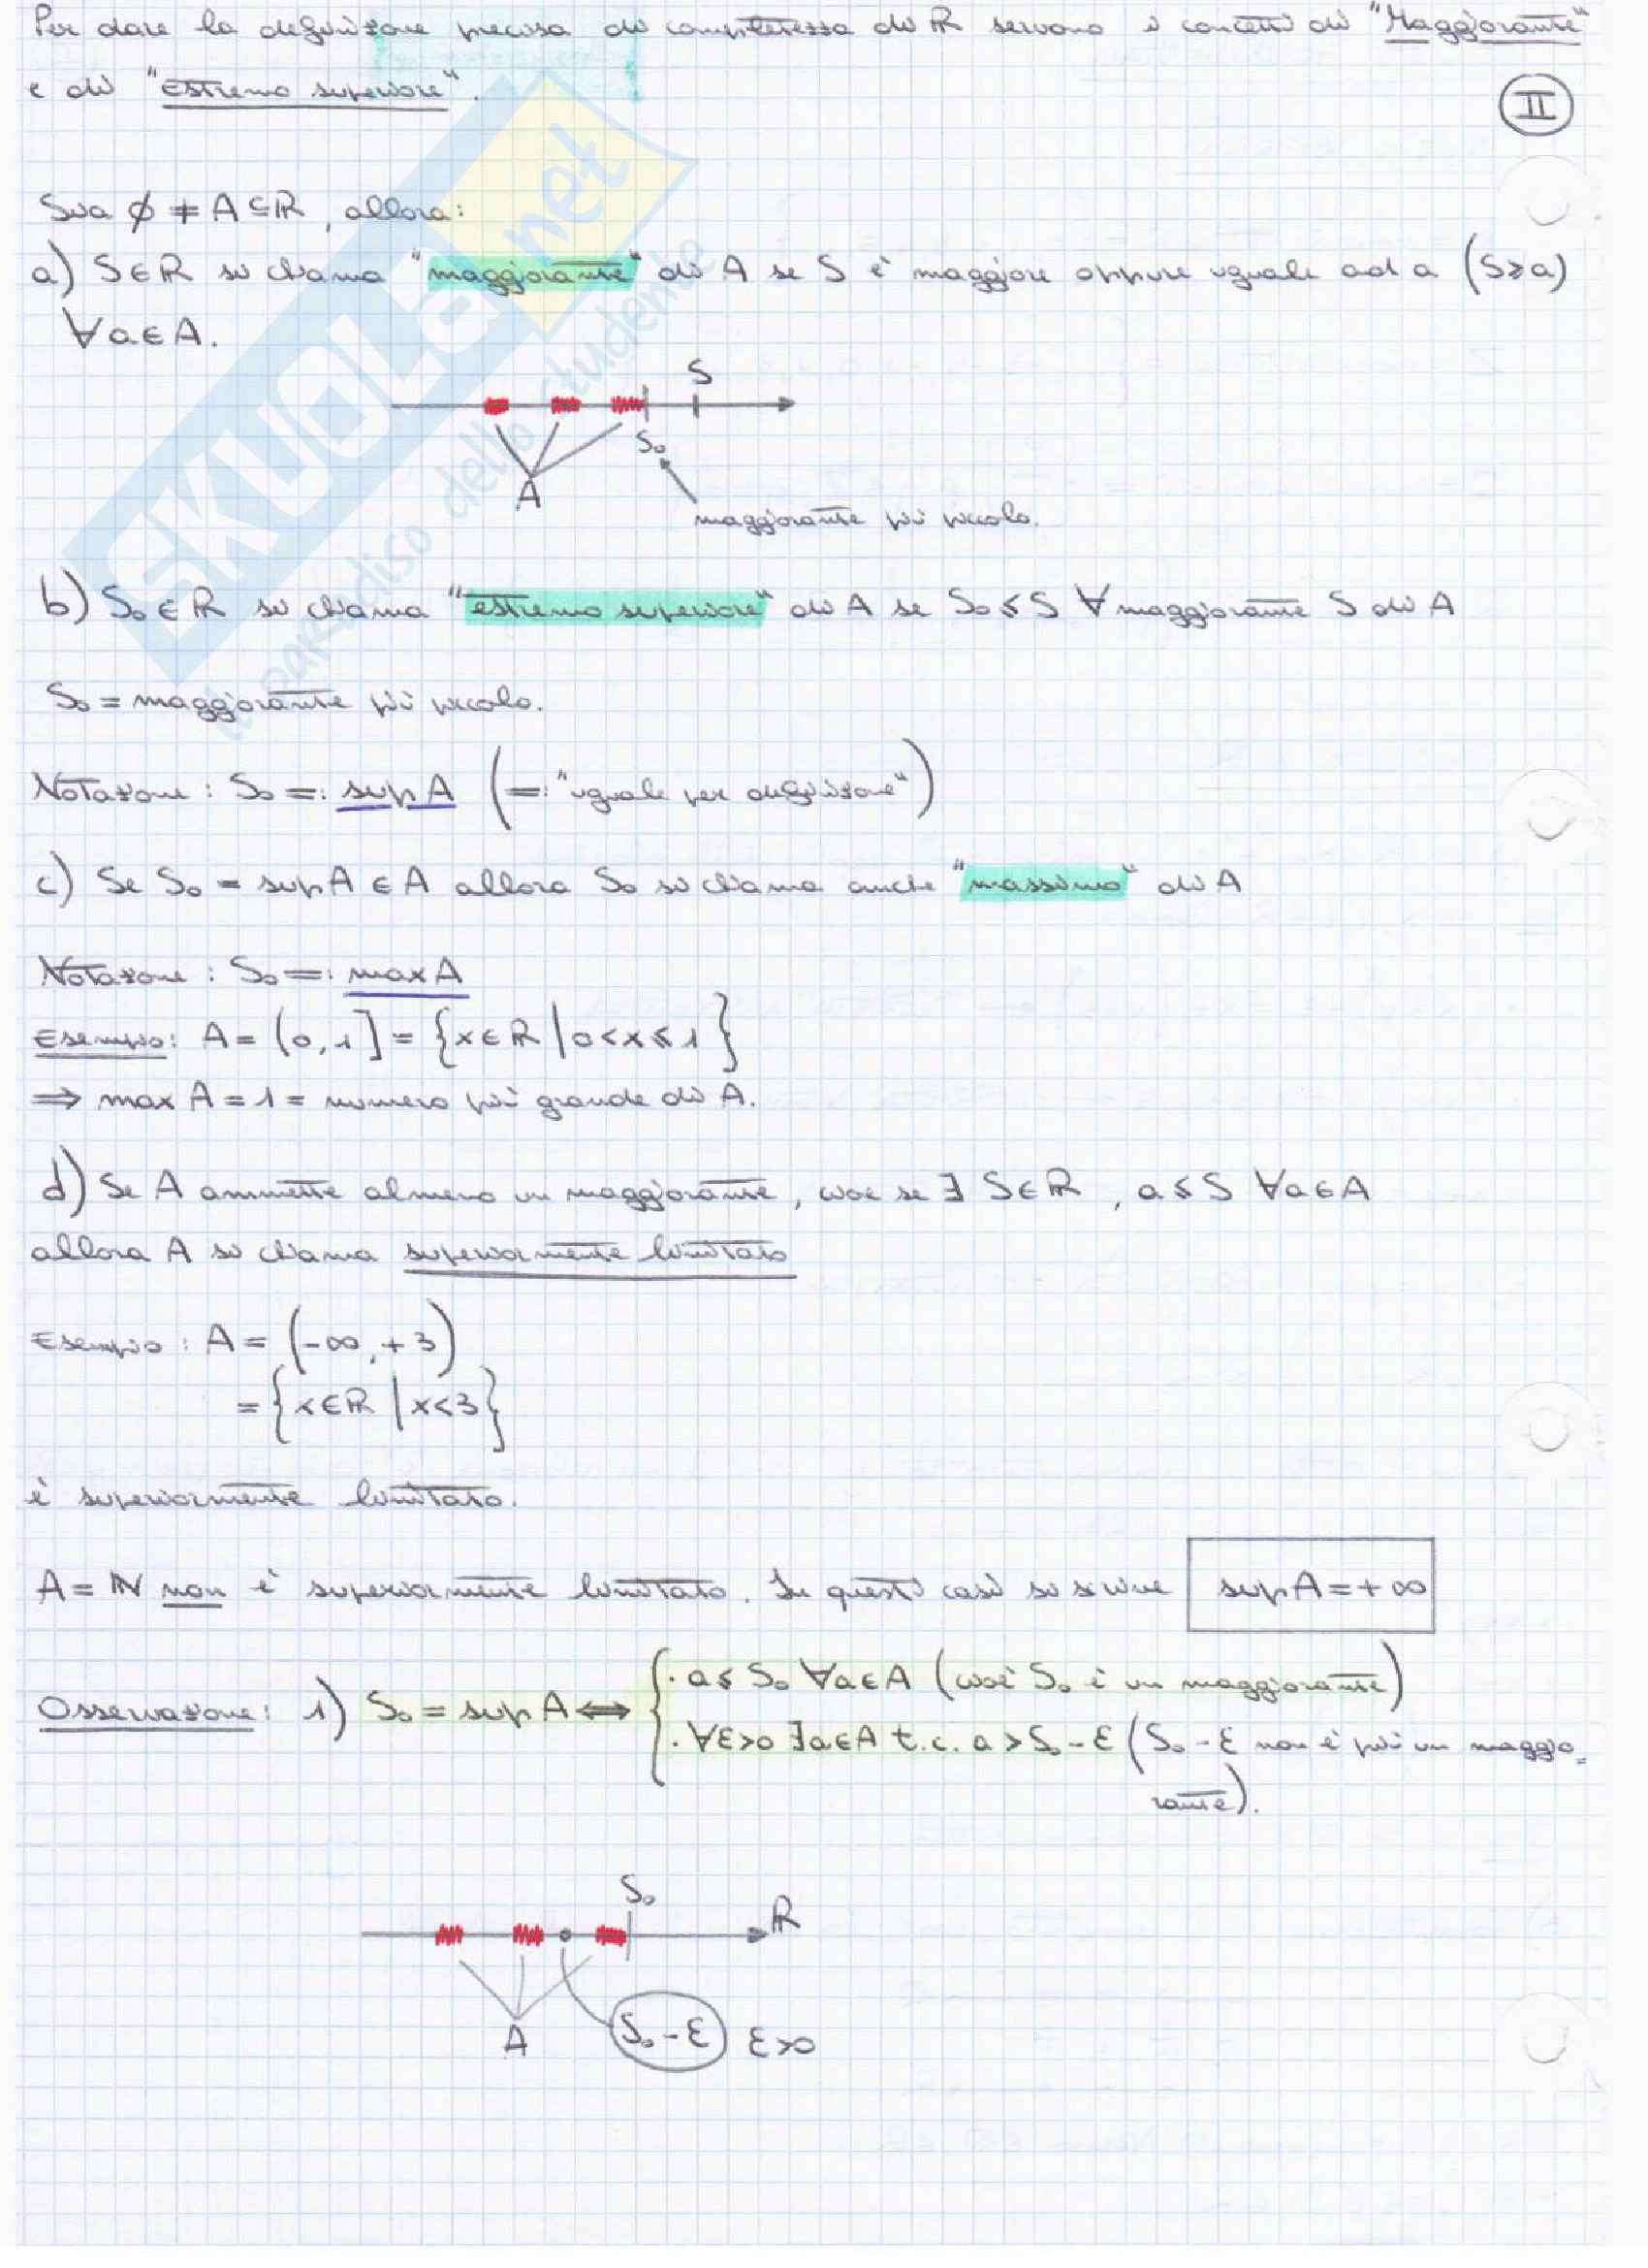 Per dare la definizione precisa di completezza di ℝ servono i concetti di "Maggiorante"
e di "estremo superiore".
II
Sia ∅ ≠ A ⊆ ℝ, allora:
a) S ∈ ℝ si chiama "maggiorante" di A se S è maggiore oppure uguale ad a (S ≥ a)
∀a ∈ A.
S
S₀
A
maggiorante più piccolo.
b) S₀ ∈ ℝ si chiama "estremo superiore" di A se S₀ ≤ S ∀ maggiorante S di A
S₀ = maggiorante più piccolo.
Notazione: S₀ =: sup A (=: "uguale per definizione")
c) Se S₀ = sup A ∈ A allora S₀ si chiama anche "massimo" di A
Notazione: S₀ =: max A
Esempio: A = (0, 1] = {x ∈ ℝ | 0 < x ≤ 1}
⇒ max A = 1 = numero più grande di A.
d) Se A ammette almeno un maggiorante, cioè se ∃ S ∈ ℝ, a ≤ S ∀a ∈ A
allora A si chiama superiormente limitato
Esempio: A = (-∞, +3)
= {x ∈ ℝ | x < 3}
è superiormente limitato.
A = ℕ non è superiormente limitato. In questi casi si scrive sup A = +∞
Osservazione: 1) S₀ = sup A ⇔ { · a ≤ S₀ ∀a ∈ A (cioè S₀ è un maggiorante)
· ∀ε>0 ∃a ∈ A t.c. a > S₀ - ε (S₀ - ε non è più un maggio=
rante).
S₀
ℝ
A
S₀ - ε
ε>0
SKUOLA.net
il paradiso dello studente